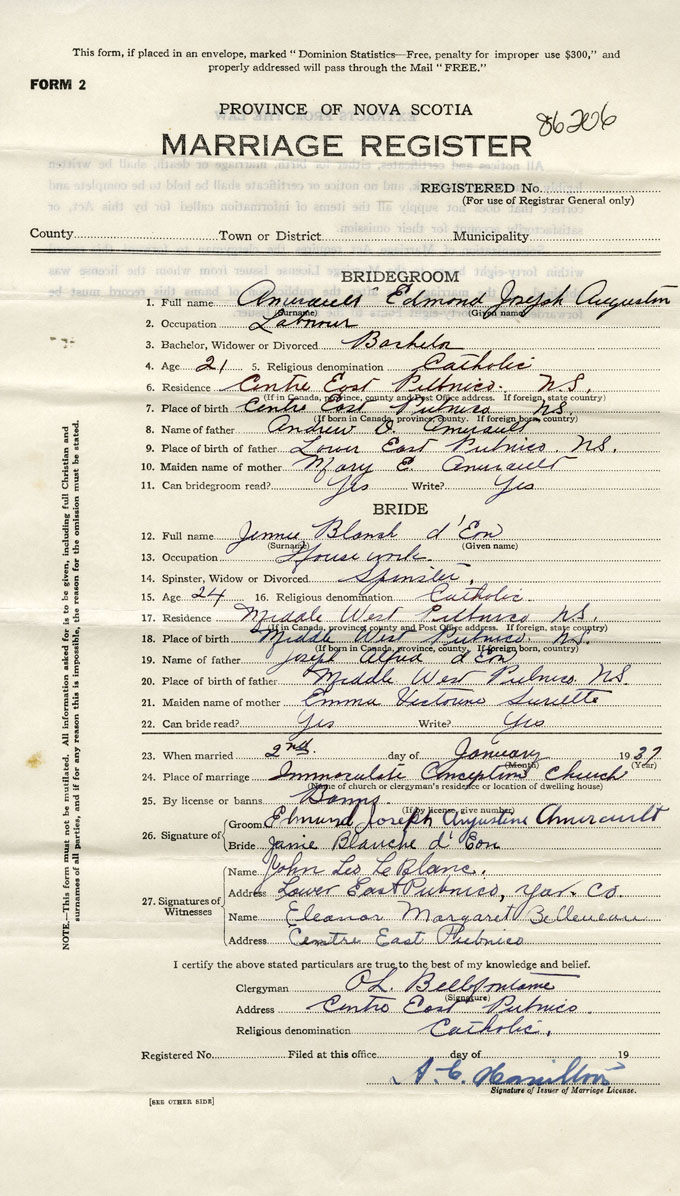 This form, if placed in an envelope, marked "Dominion Statistics—Free, penalty for improper use $300," and
properly addressed will pass through the Mail "FREE."
FORM 2
PROVINCE OF NOVA SCOTIA
86206
MARRIAGE REGISTER
REGISTERED No.
(For use of Registrar General only)
County Town or District Municipality
BRIDEGROOM
1. Full name Amirault Edmond Joseph Augustin
(Surname) (Given name)
2. Occupation Labour
3. Bachelor, Widower or Divorced Bachelor
4. Age 21 5. Religious denomination Catholic
6. Residence Centre East Pubnico. N.S.
(If in Canada, province, county and Post Office address. If foreign state, country)
7. Place of birth Centre East Pubnico NS.
(If born in Canada, province, county. If foreign born, country)
8. Name of father Andrew D. Amirault
9. Place of birth of father Lower East Pubnico. NS.
10. Maiden name of mother Mary E. Amirault
11. Can bridegroom read? Yes Write? Yes
BRIDE
12. Full name Jennie Blansh d'Eon
(Surname) (Given name)
13. Occupation House work
14. Spinster, Widow or Divorced Spinster.
15. Age 24 16. Religious denomination Catholic
17. Residence Middle West Pubnico N.S.
(If in Canada, province, county and Post Office address. If foreign, state, country)
18. Place of birth Middle West Pubnico. N.S.
(If born in Canada, province, county, If foreign born, country)
19. Name of father Joseph Alfred d'Eon
20. Place of birth of father Middle West Pubnico NS.
21. Maiden name of mother Emma Surette
22. Can bride read? Yes Write? Yes
23. When married 2nd. day of January 1937
(Month) (Year)
24. Place of marriage Immaculate Conception Church
(Name of church or clergyman's residence or location of dwelling house)
25. By license or banns Banns
(If by license, give number)
26. Signature of
Groom Edmund Joseph Augustine Amirault
Bride Janie Blanche d'Eon
27. Signatures of Witnesses
Name John Leo LeBlanc.
Address Lower East Pubnico, Yar. Co.
Name Eleanor Margaret Belliveau
Address Centre East Pubnico
I certify the above stated particulars are true to the best of my knowledge and belief.
Clergyman Bellefontaine
(Signature)
Address Centre East Pubnico
Religious denomination Catholic.
Registered No. Filed at this office day of 19
A. C. Hamilton
Signature of Issuer of Marriage License.
[SEE OTHER SIDE]
NOTE.—This form must not be mutilated. All information asked for is to be given, including full Christian and
surnames of all parties, and if for any reason this is impossible, the reason for the omission must be stated.